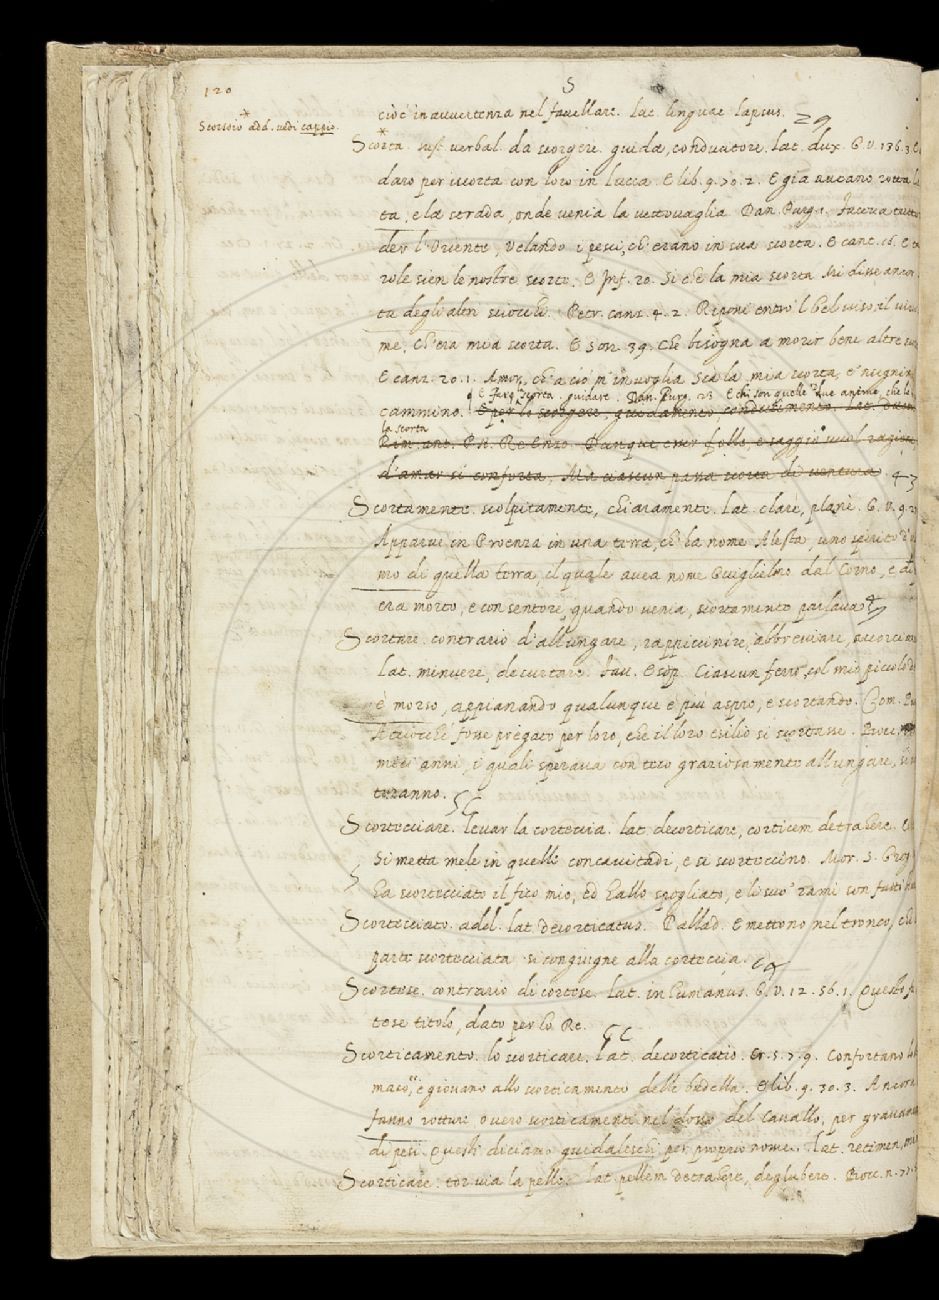 120
S
Scorsoio add. vedi cappio.
cioè inavvertenza nel favellare. lat. linguae lapsus. 29
Scorta. sust. verbal. da scorgere. guida, conducitore. Lat. dux. G.V. 136.3. E
daro per iscorta con loro in Lucca. E lib. 9. 70. 2. E già aveano rotta la
ta, e la strada, onde venia la vettovaglia. Dan. Purg. 1. Faceva tutto
der l'Oriente, Velando i pesci, ch'erano in sua scorta. E cant. 16. E
role sien le nostre scorte. E Inf. 20. Sì ch'è la mia scorta Mi disse ancor
ta degli altri sciocchi. Petr. canz. 4. 2. Riponi entro 'l bel viso il vivo
me, ch'era mia scorta. E son. 39. Che bisogna a morir beni altre
E canz. 20. 1. Amor, ch'a ciò m'invoglia Sia la mia scorta, e 'nsegnimi
E Farq. scorta. guidare. Dan. Purg. 23 E chi son quelle due anime, che la
cammino. E per lo scorgere, guidamento conducimento. Lat.
la scorta
Rim. ant. P.N. Re Enzo. Dunque esser folle, e saggio vuol ragione,
d'amar si conforta, Ma ciascun passa scorta di ventura. 43
Scortamente. scolpitamente, chiaramente. Lat. clarè, planè. G.V. 9.
Apparve in Proenza in una terra, ch'ha nome Alesta, uno spirito d'
mo di quella terra, il quale avea nome Guiglielmo dal Corno, e di
era morto, e con sentore, quando venia, scortamente parlava
Scortare. contrario d'allungare, rappiccinire, abbreviare, accorciare
Lat. minuere, decurtare. Fav. Esop. Ciascun ferro, col mio piccolo
è morso, appianando qualunque è più aspro, e scortando. Com.
Acciocchè fosse pregato per loro, che il loro esilio si scortasse. Bocc.
miei anni, i quali sperava con teco graziosamente allungare, si
teranno. SC
Scortecciare. levar la corteccia. lat. decorticare, corticem detrahere.
Si metta mele in quelli concavitadi, e si scorteccino. Mor. S. Greg.
Ha scortecciato il fico mio, ed hallo spogliato, e li suo' rami son fatti
Scortecciato. add. lat. decorticatus. Pallad. E mettono nel tronco, che
parte scortecciata si congiugne alla corteccia.
Scortese. contrario di cortese. Lat. inhumanus. G.V. 12. 56. 1. Questo
tese titolo, dato per lo Re. CC
Scorticamento. lo scorticare. lat. decorticatio. Cr. 5. 7. 9. Confortano lo
maco, e giovano allo scorticamento delle budella. E lib. 9. 30. 3. Ancora
fanno rotture ovvero scorticamenti nel dosso del Cavallo, per gravamento
di pesi. Questi diciamo guidaleschi per proprio nome. Lat. retimen,
Scorticare. tor via la pelle. lat. pellem detrahere, deglubere. Bocc. n.